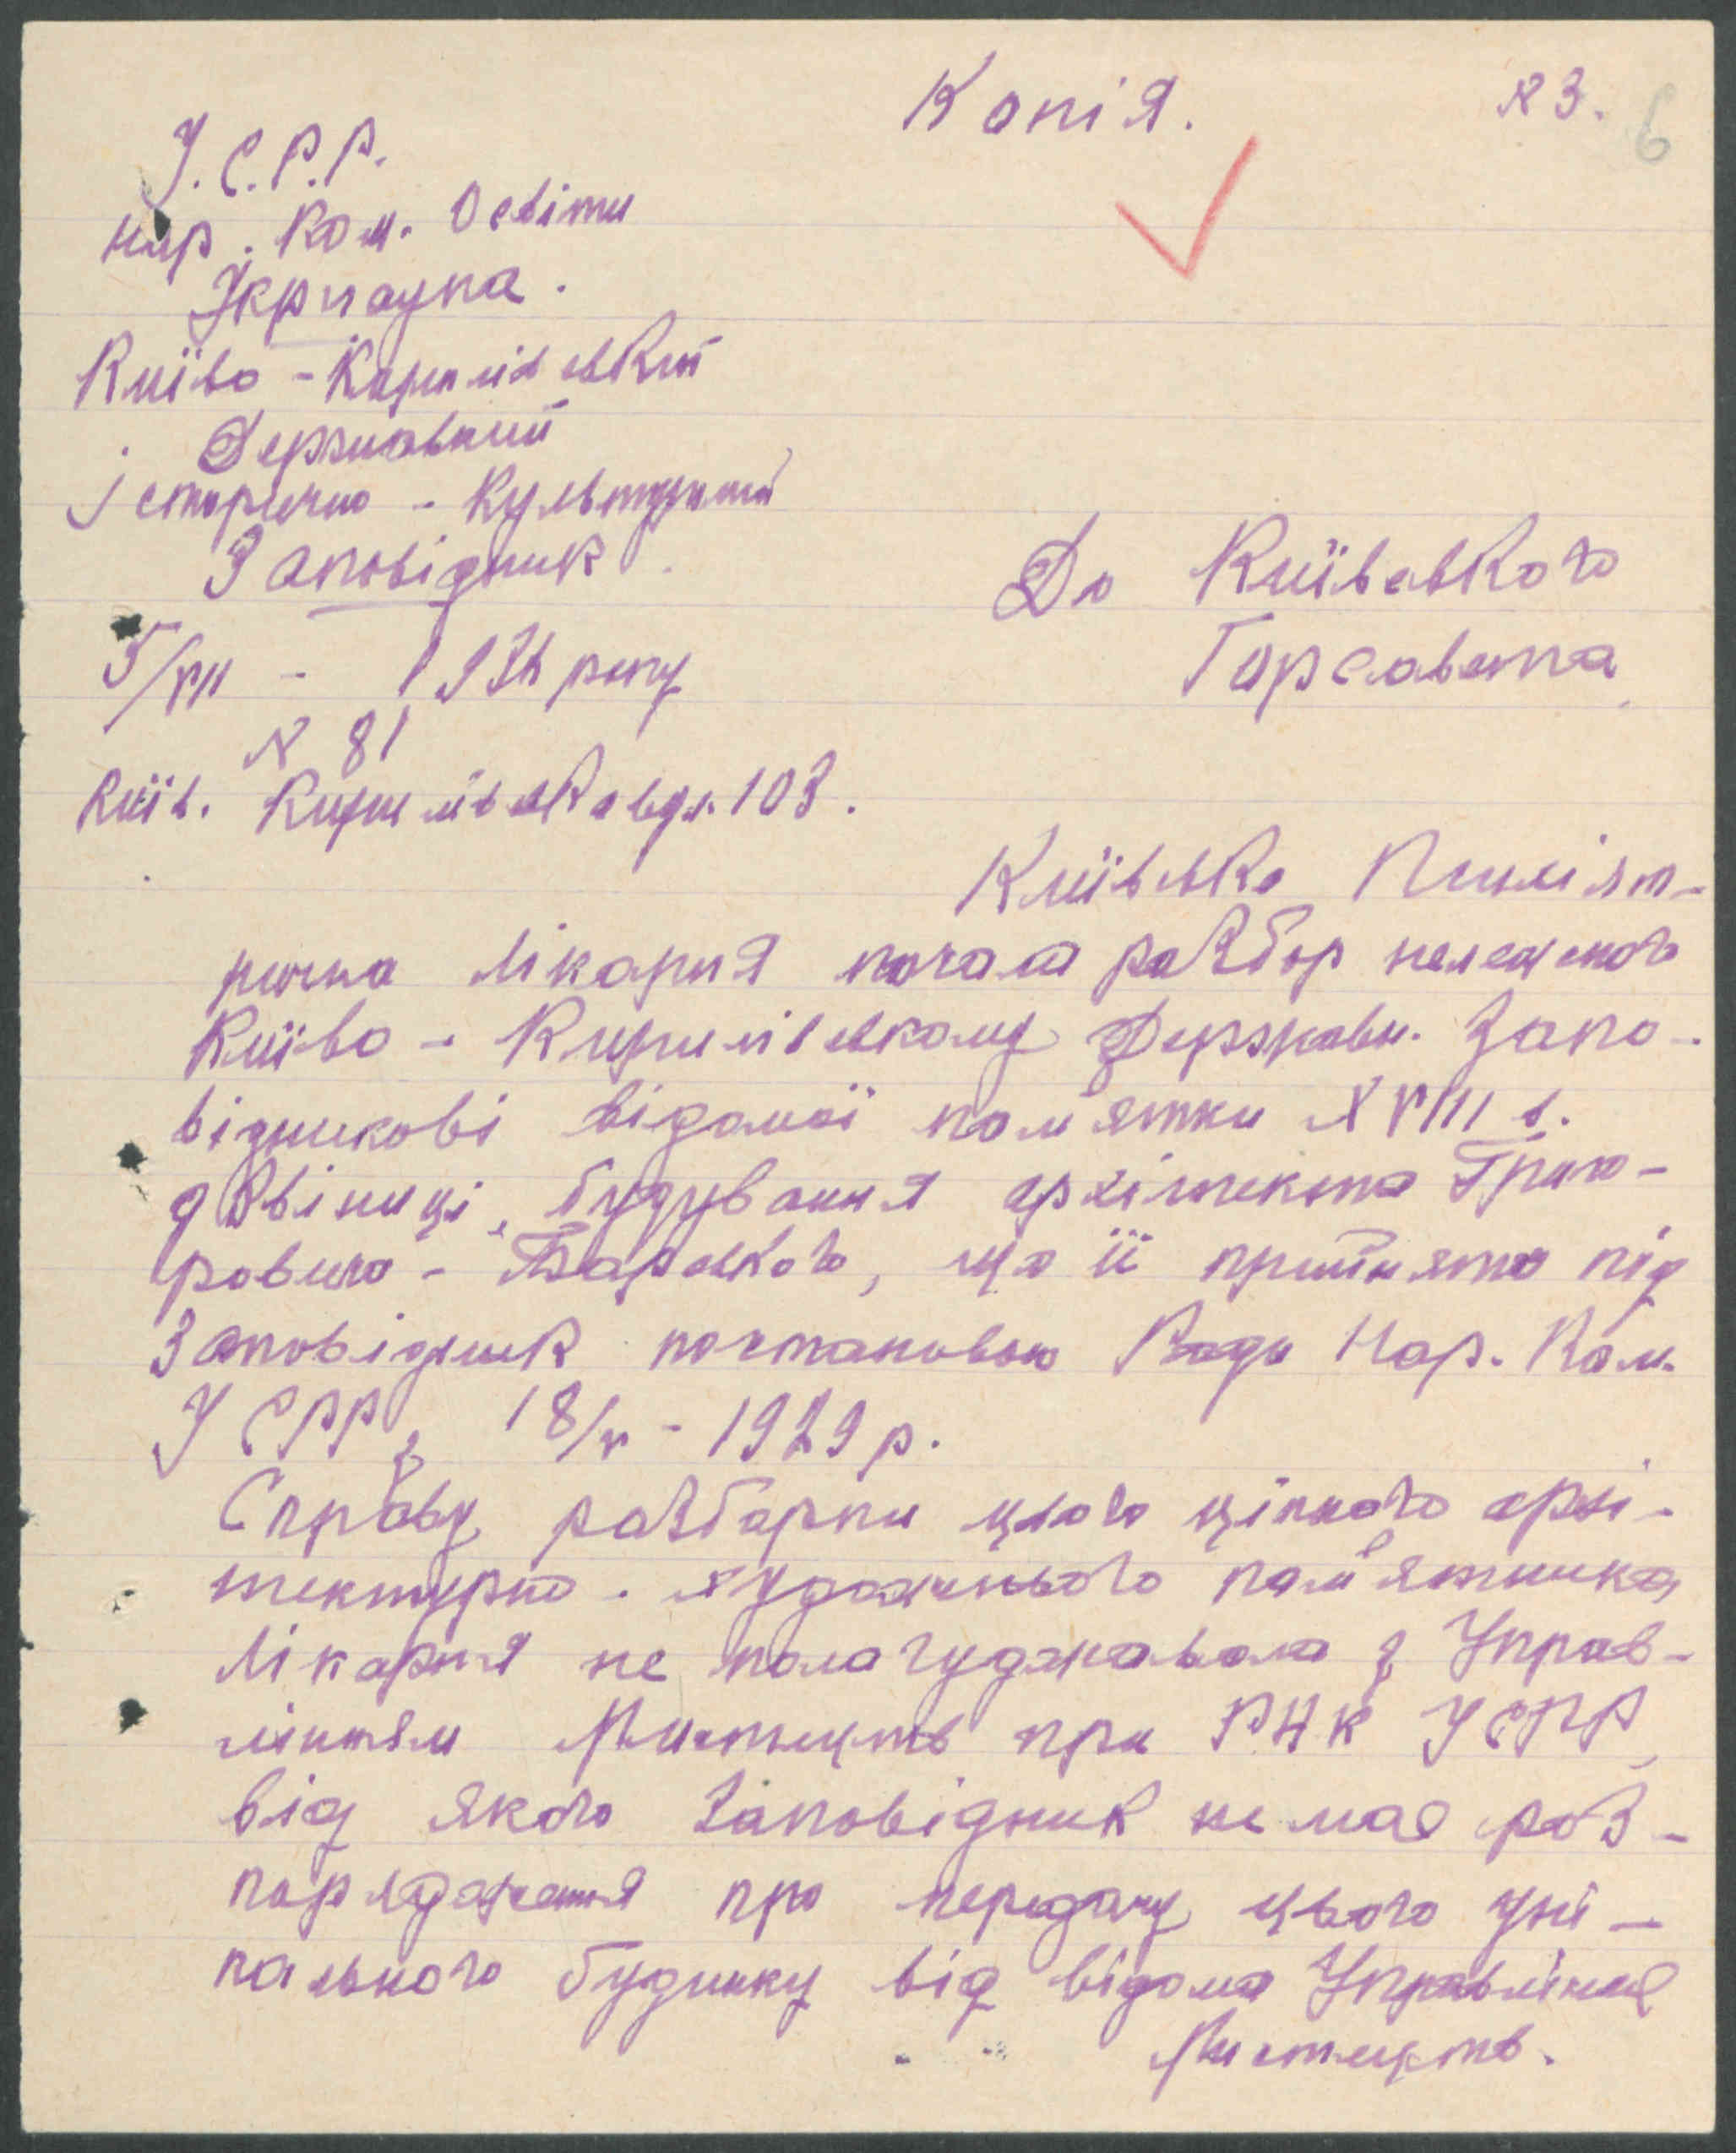 Копія.
№ 3.
6
У.С.Р.Р.
Нар. Ком. Освіти
Укрнаука.
Київо-Кирилівський
Державний
Історично-Культурний
Заповідник.
5/VII - 193 року
N 81
Київ. Кирилівська вул. 103.
До Київського
Горсовета
Київська Психіят-
рична лікарня почала разбор належной
Київо-Кирилівському Державн. Запо-
відникові відомої пам'ятки XVIII в.
дзвіниці, будування архітекта Григо-
ровича-Барського, що її прийнято під
Заповідник постановою Ради Нар. Ком.
УСРР з 18/V - 1929 р.
Справу разборки цього цінного архі-
тектурно-художнього пам'ятника
лікарня не пологуджавала з Управ-
лінням Мистецтв при РНК УСРР,
від якого Заповідник не має роз-
порядження про передачу цього уні-
кального будинку від відома Управління
Мистецтв.